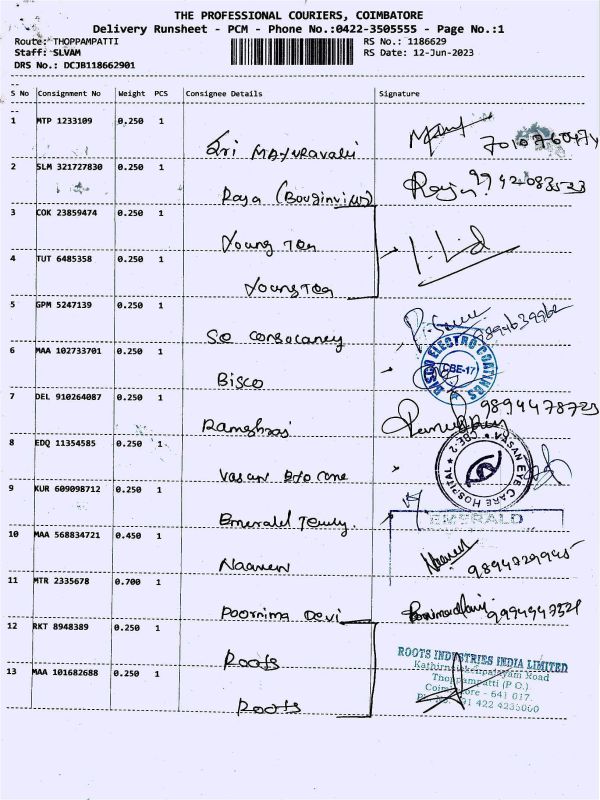 THE PROFESSIONAL COURIERS, COIMBATORE
Delivery Runsheet - PCM - Phone No.:0422-3505555 - Page No.:1
Route: THOPPAMPATTI RS No.: 1186629
Staff: SLVAM RS Date: 12-Jun-2023
DRS No.: DCJB118662901
S No Consignment No Weight PCS Consignee Details Signature
1 MTP 1233109 0.250 1
Sri MAYURAVALLI
2 SLM 321727830 0.250 1
Raja (Bouginvilla)
3 COK 23859474 0.250 1
Young Ten
4 TUT 6485358 0.250 1
Young Ten
5 GPM 5247139 0.250 1
9894639962
6 MAA 102733701 0.250 1
Bisco
BISCO ELECTRO COATINGS
CBE-17
7 DEL 910264087 0.250 1
9894478723
8 EDQ 11354585 0.250 1
Vasan Eye Care
VASAN EYE CARE HOSPITAL
CBE-2
9 KUR 609098712 0.250 1
Emerald
EMERALD
10 MAA 568834721 0.450 1
Naveen
11 MTR 2335678 0.700 1
Poornima Devi
12 RKT 8948389 0.250 1
Roots
13 MAA 101682688 0.250 1
Roots
ROOTS INDUSTRIES INDIA LIMITED
Road
Thoppampatti (P.O.)
Coimbatore - 641 017.
91 422 4235000